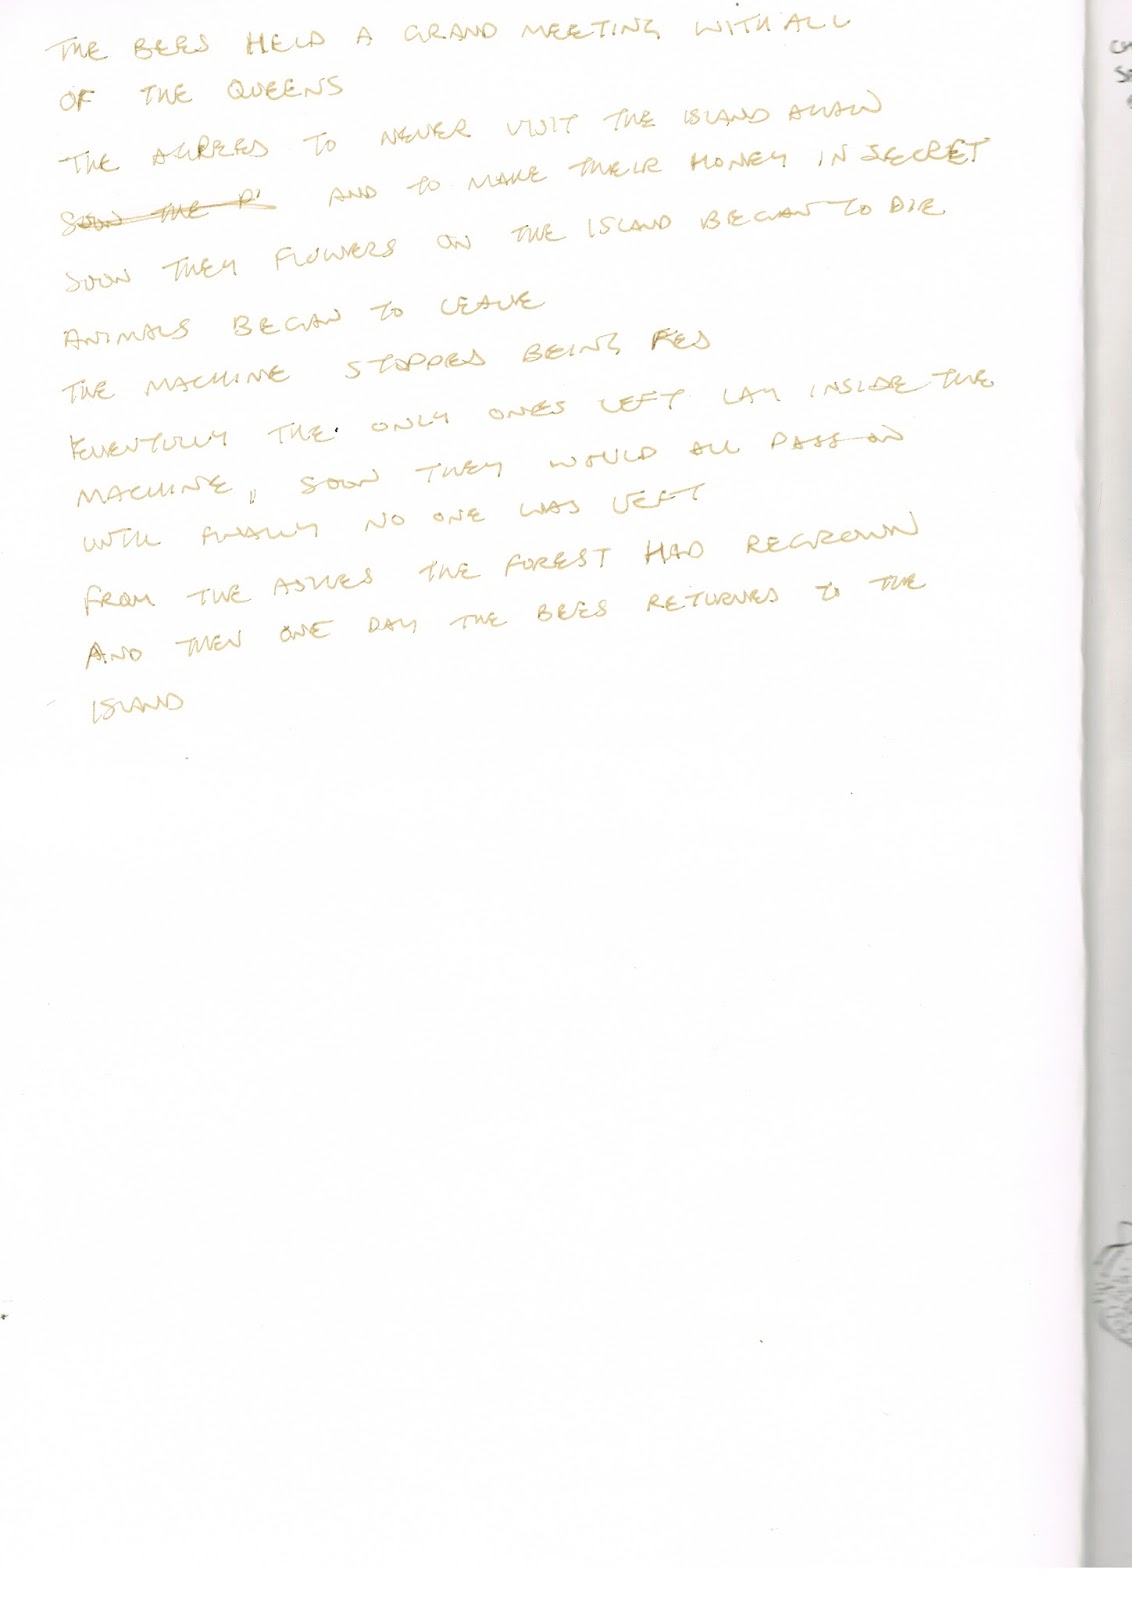 THE BEES HELD A GRAND MEETING WITH ALL
OF THE QUEENS
THE AGREED TO NEVER VISIT THE ISLAND AGAIN
SOON THE P' AND TO MAKE THEIR HONEY IN SECRET
SOON THEY FLOWERS ON THE ISLAND BEGAN TO DIE
ANIMALS BEGAN TO LEAVE
THE MACHINE STOPPED BEING FED
EVENTULLY THE ONLY ONES LEFT LAY INSIDE THE
MACHINE, SOON THEY WOULD ALL PASS ON
UNTIL FINALLY NO ONE WAS LEFT
FROM THE ASHES THE FOREST HAD REGROWN
AND THEN ONE DAY THE BEES RETURNED TO THE
ISLAND